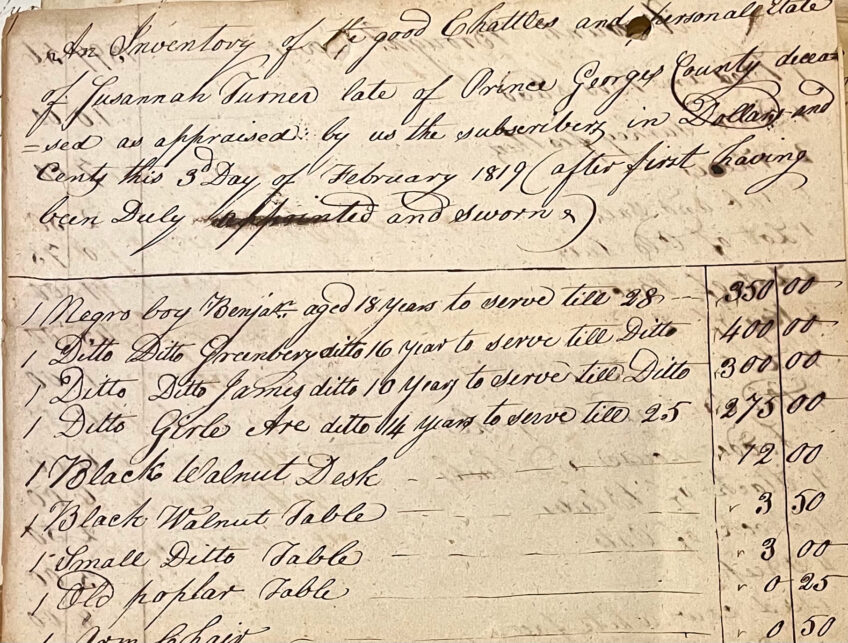 An Inventory of the good Chattles and personal Estate
of Susannah Turner late of Prince Georges County decea
=sed as appraised by us the subscribers in Dollars and
Cents this 3d Day of February 1819 (after first having
been Duly appointed and sworn)
1 Negro boy Benjan. aged 18 years to serve till 28 350 00
1 Ditto Ditto Greenbery ditto 16 year to serve till Ditto 400 00
1 Ditto Ditto James ditto 10 years to serve till Ditto 300 00
1 Ditto Girle Are ditto 14 years to serve till 25 275 00
1 Black Walnut Desk 12 00
1 Black Walnut Table 3 50
1 Small Ditto Table 3 00
1 Old poplar Table 0 25
1 Arm Chair 0 50